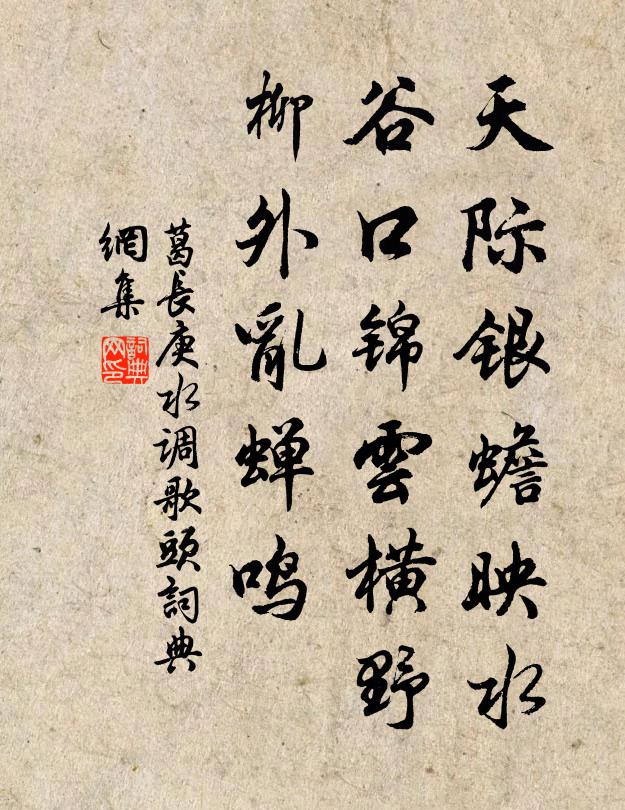 天际银蟾映水
谷口锦雲横野
柳外亂蝉鸣
葛長庚水调歌頭詞典
網集
詞典
网印